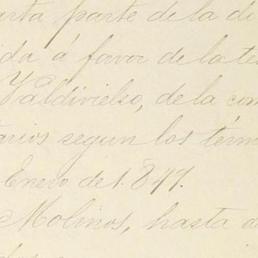 arta parte de la di
ida á favor de la te
Valdivielso, de la com
arios segun los térm
Enero de 1.877.
Molinos, hasta d